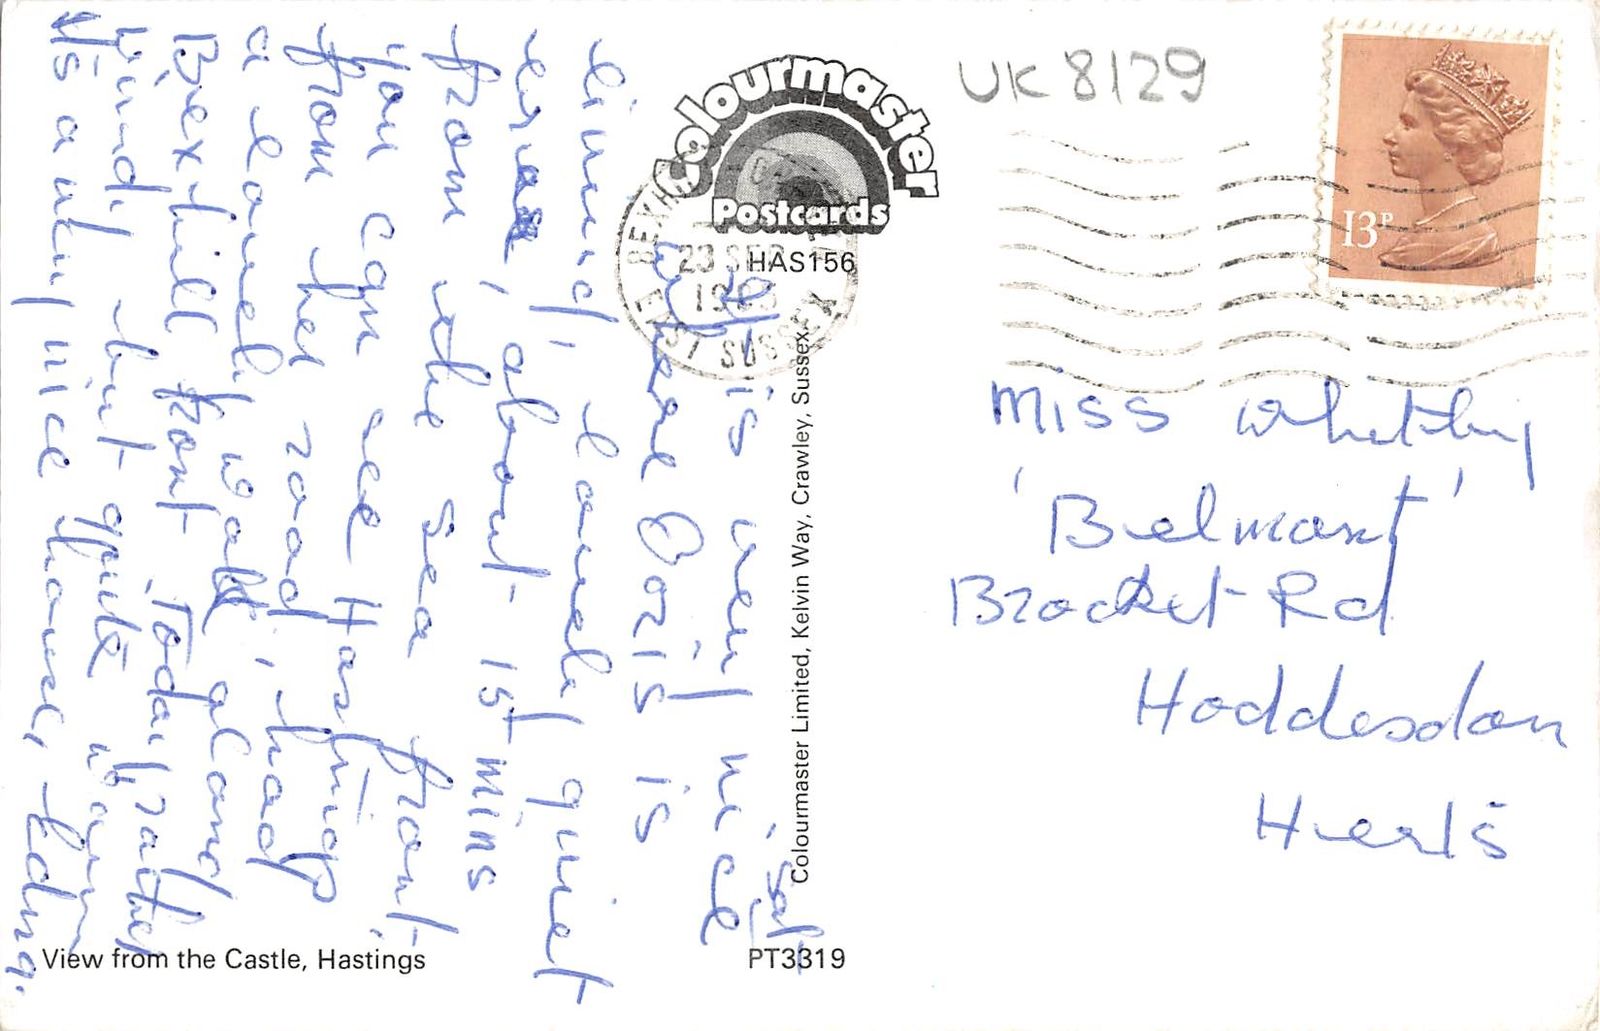 UK 8129
Colourmaster
Postcards
HAS156
BEXHILL
23 SEP
EAST SUSSEX
13P
Miss Whitby
'Belmont'
Brocket Rd
Hoddesdon
Herts
Sat.
It is very nice
where Doris is
living, lovely quiet
area, about 15 mins
from the sea front,
you can see Hastings
from her road, had
a lovely walk along
Bexhill front. Today rather
windy but quite warm
It's a very nice house, Edna.
Colourmaster Limited, Kelvin Way, Crawley, Sussex.
View from the Castle, Hastings
PT3319